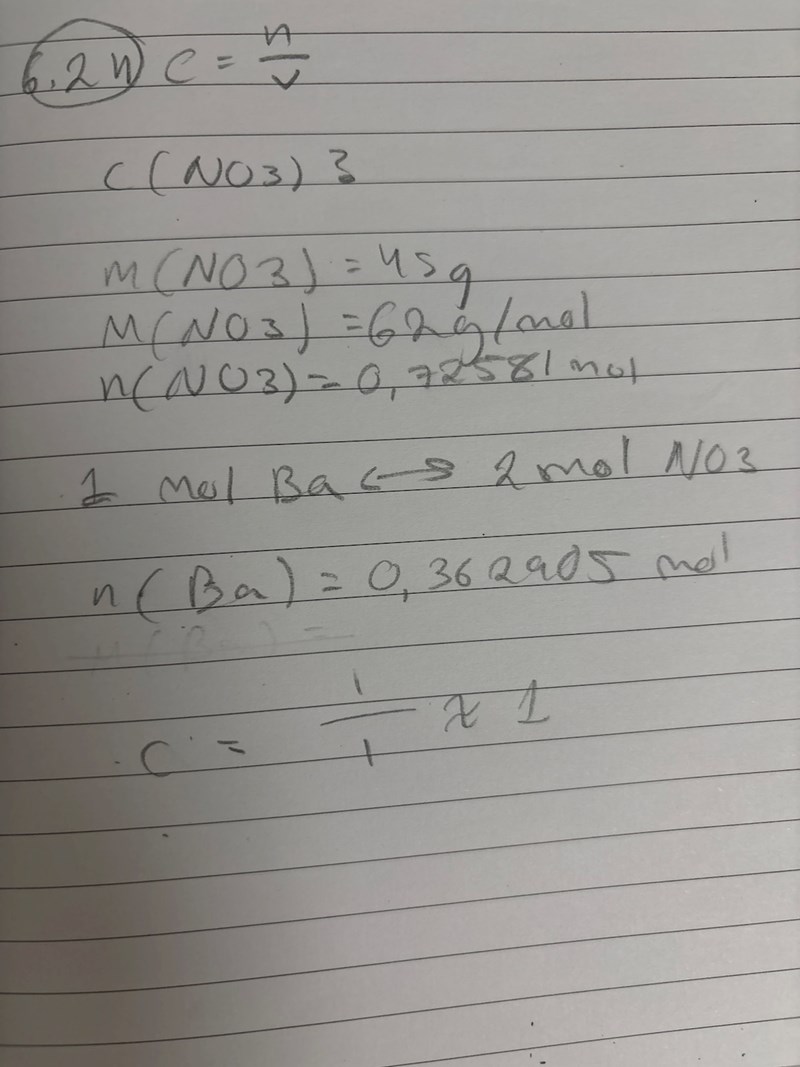 6.24) C = n/v
C(NO3)3
m(NO3) = 45g
M(NO3) = 62g/mol
n(NO3) = 0,72581 mol
1 mol Ba <-> 2 mol NO3
n(Ba) = 0,362905 mol
n(Ba) =
C = 1/1 x 1